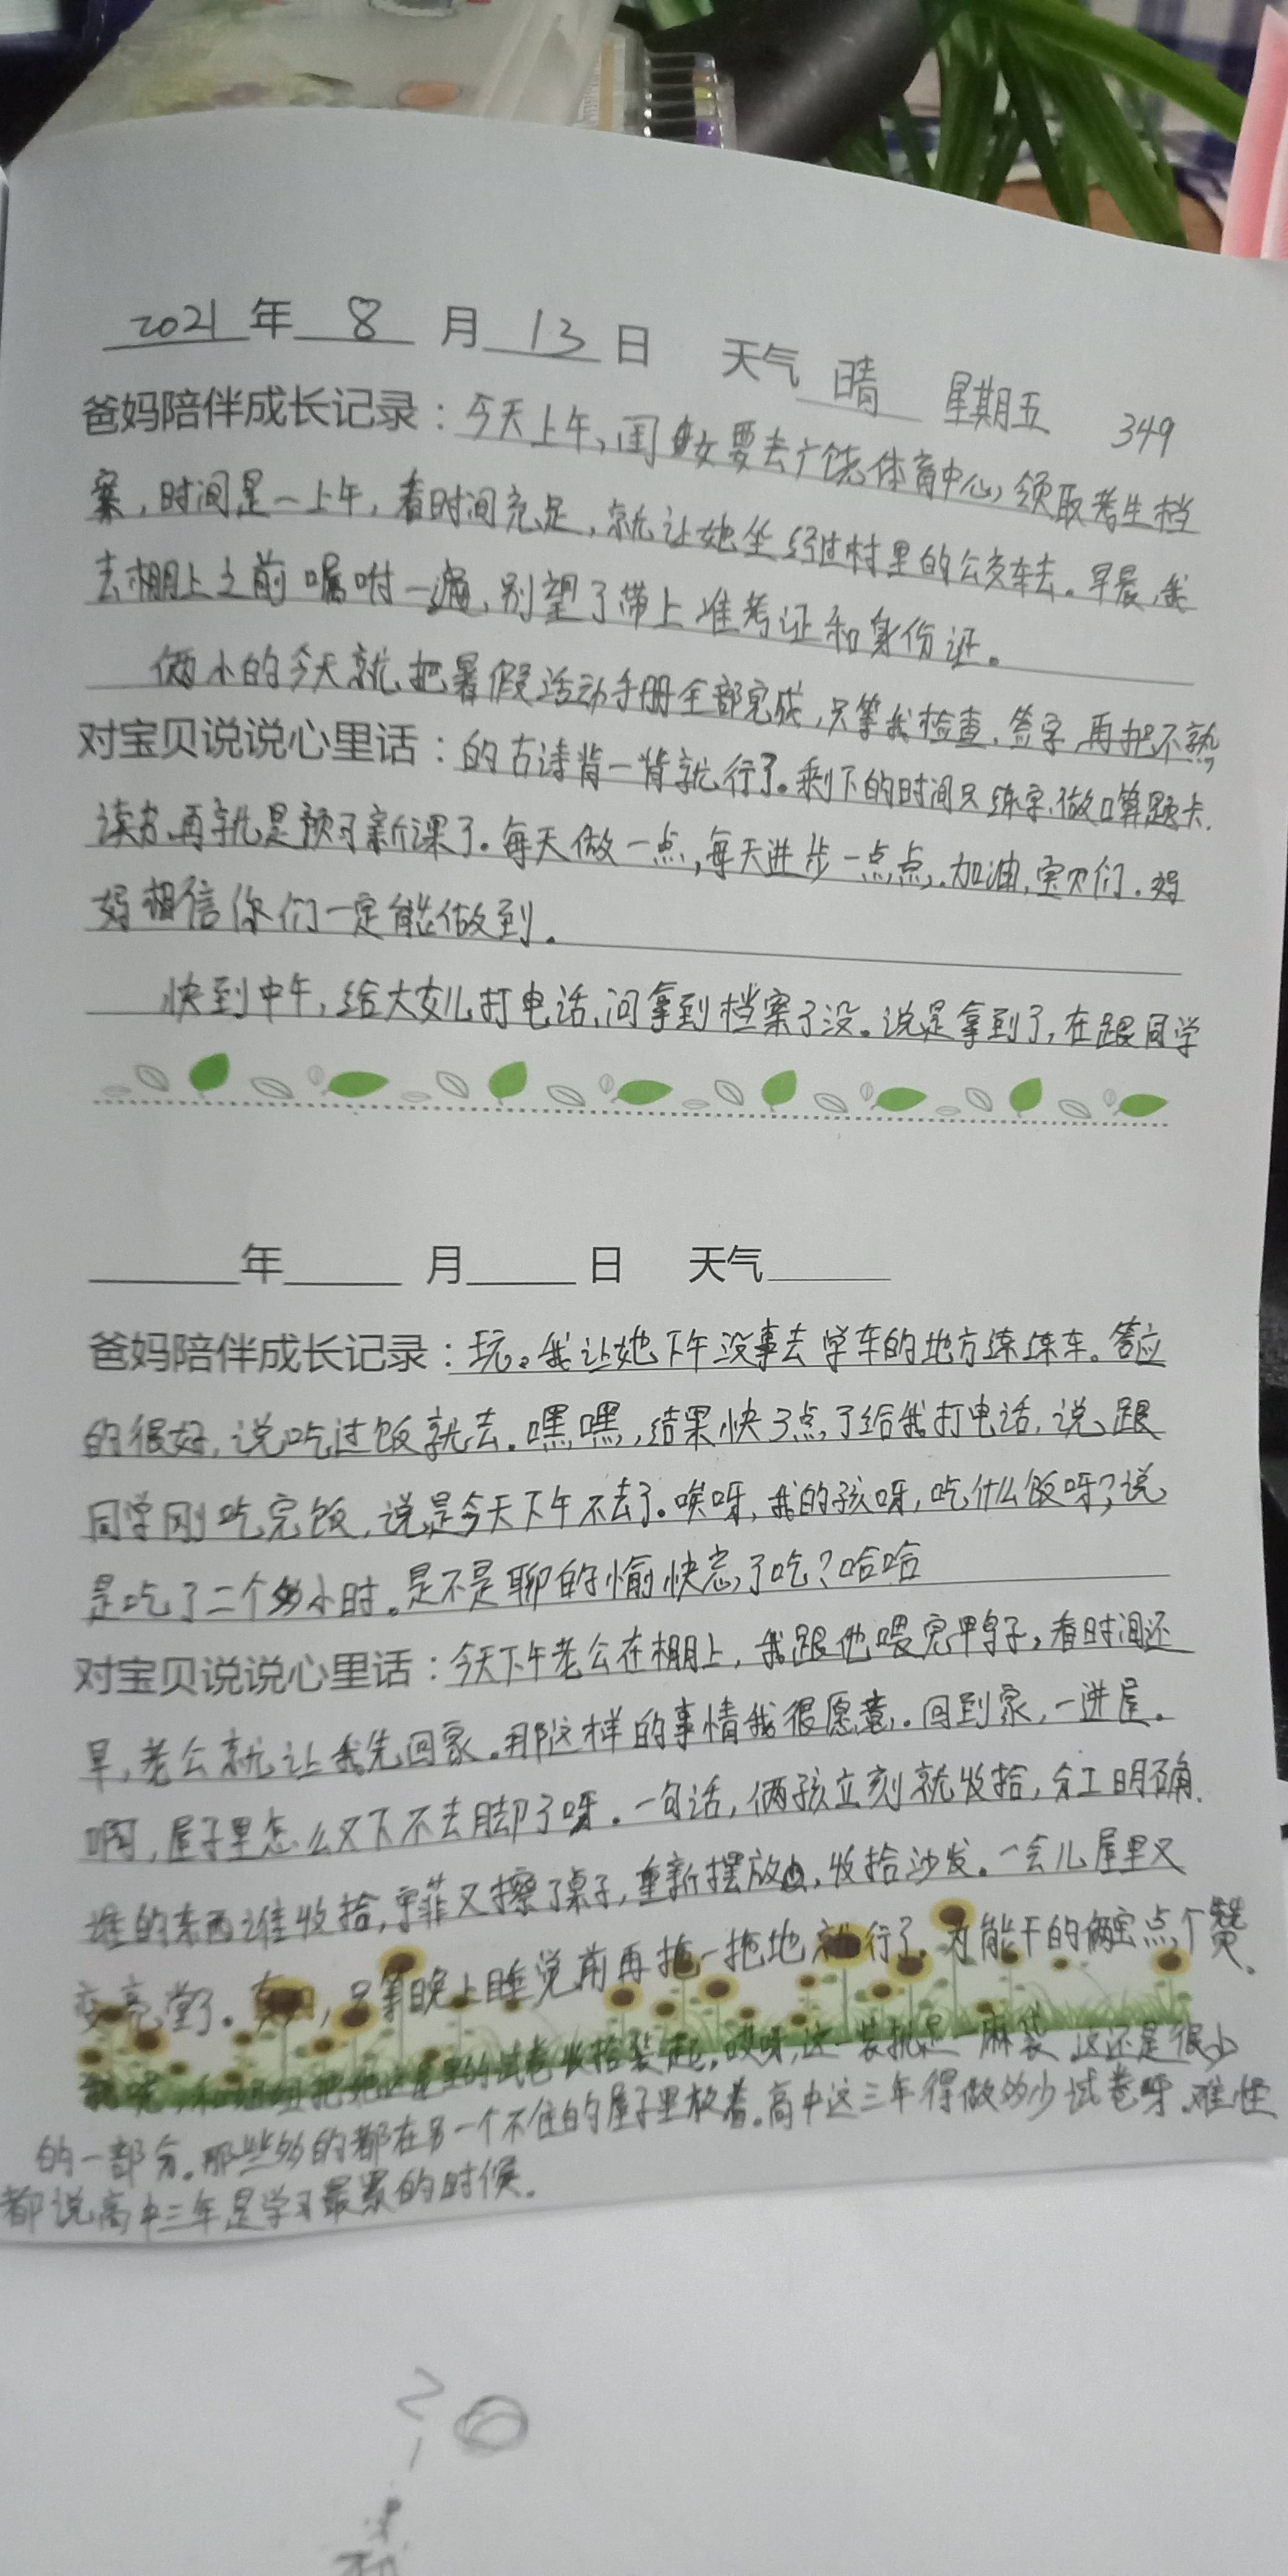 2021年 8 月 13 日 天气 晴 星期五 349
爸妈陪伴成长记录：今天上午，闺女要去广饶体育中心，领取考生档
案，时间是一上午，看时间充足，就让她坐经过村里的公交车去。早晨，我
去棚上之前嘱咐一遍，别望了带上准考证和身份证。
俩小的今天就把暑假活动手册全部完成，只等我检查、签字，再把不熟
对宝贝说说心里话：的古诗背一背就行了。剩下的时间只练字、做口算题卡.
读书，再就是预习新课了。每天做一点，每天进步一点点，加油，宝贝们．妈
妈相信你们一定能做到．
快到中午，给大女儿打电话，问拿到档案了没。说是拿到了，在跟同学
年 月 日 天气
爸妈陪伴成长记录：玩。我让她下午没事去学车的地方练练车。答应
的很好，说吃过饭就去．嘿嘿，结果快3点了给我打电话，说跟
同学刚吃完饭，说是今天下午不去了。唉呀，我的孩呀，吃什么饭呀？说
是吃了二个多小时。是不是聊的愉快忘了吃？哈哈
对宝贝说说心里话：今天下午老公在棚上，我跟他喂完鸭子，看时间还
早，老公就让我先回家。那这样的事情我很愿意．回到家，一进屋．
啊，屋子里怎么又下不去脚了呀．一句话，俩孩立刻就收拾，分工明确．
谁的东西谁收拾，宇菲又擦了桌子，重新摆放，收拾沙发。一会儿屋里又
变亮堂了。 只等晚上睡觉前再拖一拖地就行了。为能干的俩宝点个赞．
的试卷收拾装起，哎呀，这一装就是一麻袋 这还是很少
的一部分．那些多的都在另一个不住的屋子里放着。高中这三年得做多少试卷呀．难怪
都说高中三年是学习最累的时候．
2
1